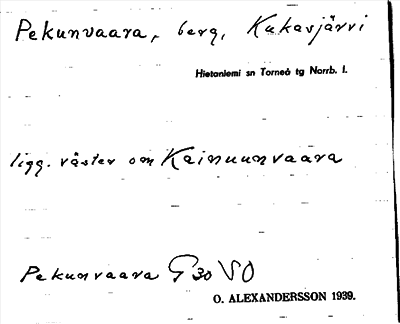 Pekunvaara, berg, Kukasjärvi
Hietaniemi sn Torneå tg Norrb. l.
ligg. väster om Kainuunvaara
Pekunvaara G 30 VO
O. ALEXANDERSSON 1939.